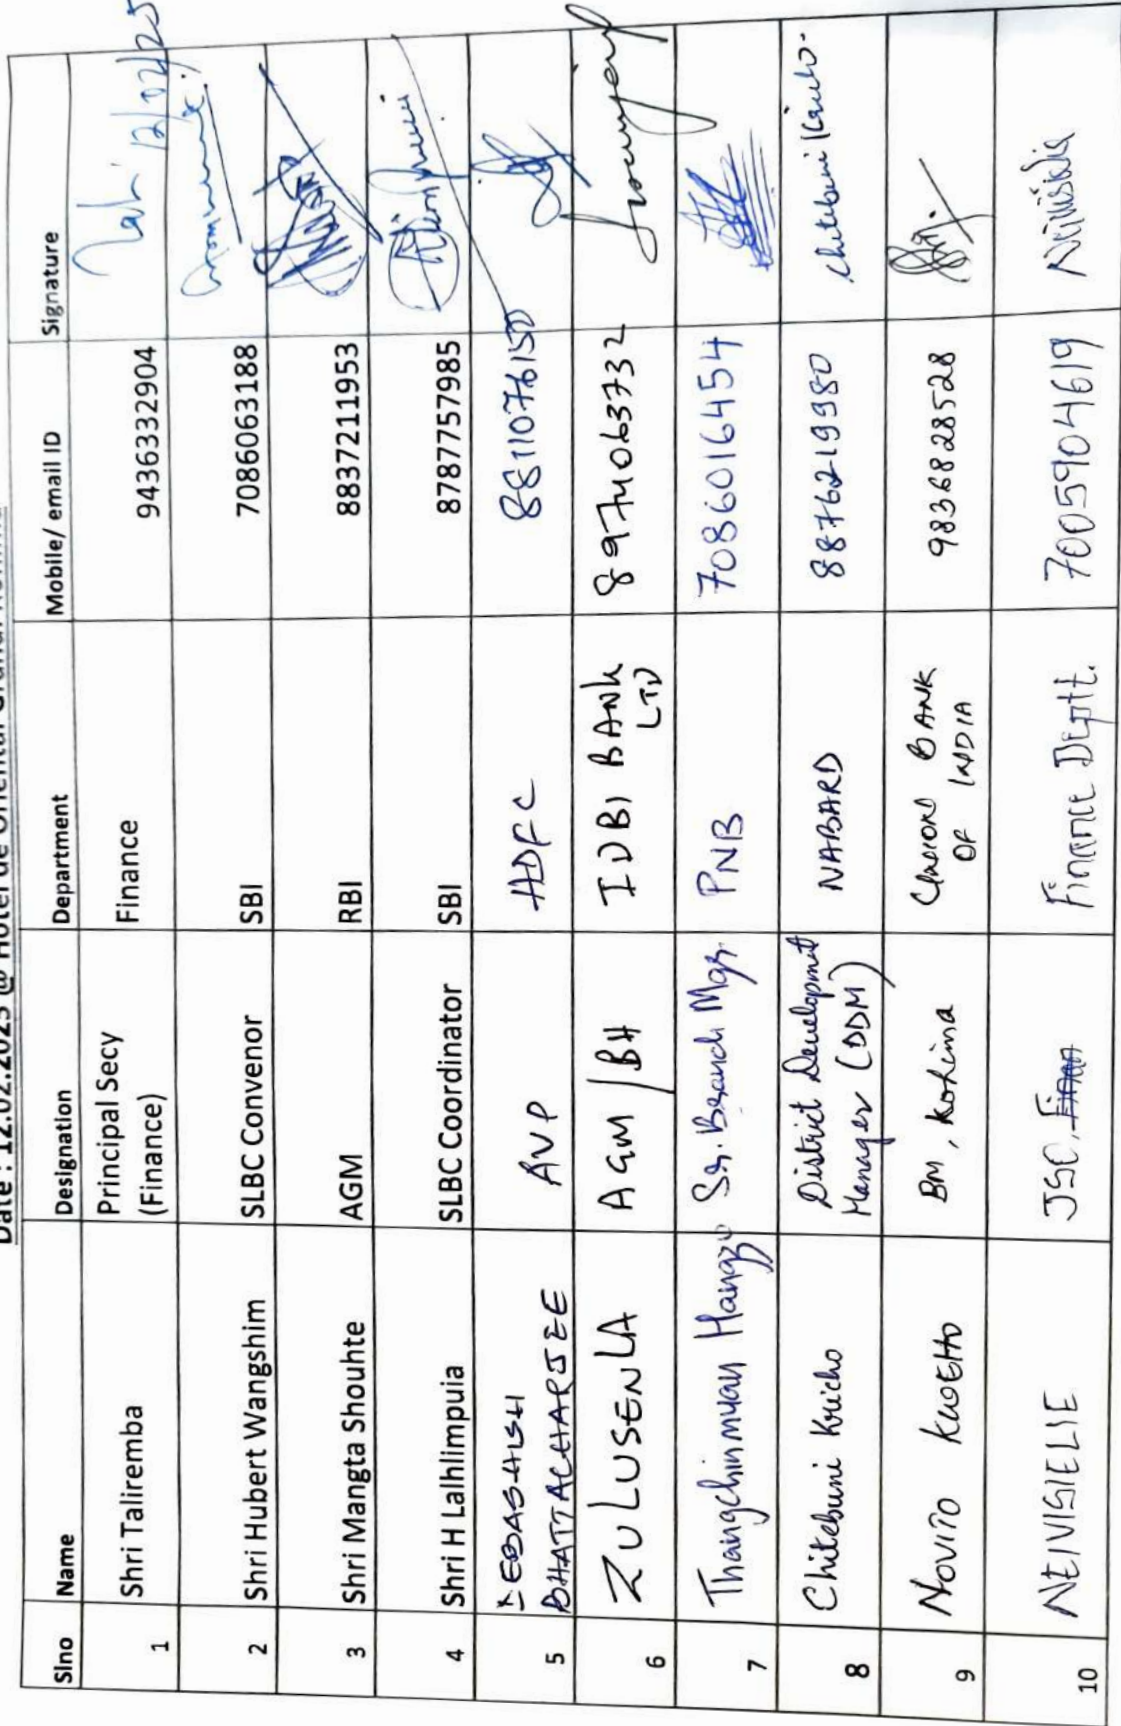 Date : 12.02.2025 @ Hotel de Oriental Grand, Kohima
Slno Name Designation Department Mobile/ email ID Signature
1 Shri Taliremba Principal Secy Finance 9436332904 12/02/25
(Finance)
2 Shri Hubert Wangshim SLBC Convenor SBI 7086063188
3 Shri Mangta Shouhte AGM RBI 8837211953
4 Shri H Lalhlimpuia SLBC Coordinator SBI 8787757985
5 DEBASHISH AVP HDFC
BHATTACHARJEE
6 ZULUSENLA AGM/BH IDBI BANK 8974063732
LTD
7 Thangchinmuan Hangzo Sr. Branch Mgr. PNB 7086016454
8 Chitebuni Kuicho District Development NABARD 8876219980
Manager (DDM)
9 NOVITO KWOTHO BM, Kohima CENTRAL BANK 9836828528
OF INDIA
10 NEIVISIELIE JSO, Finance Deptt. 7005904619